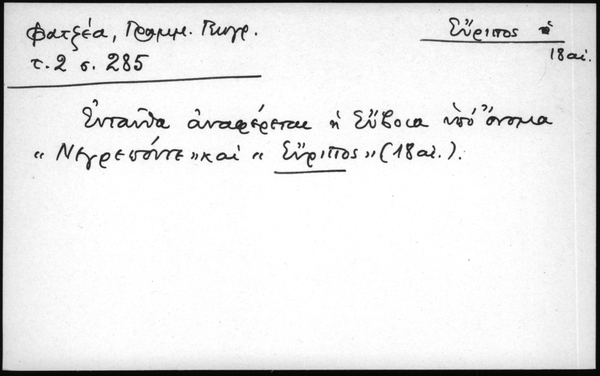 Φατζέα, Γραμμ. Γεωγρ.
τ. 2 σ. 285
Εὔριπος ὁ
18 αἰ.
Ἐνταῦθα ἀναφέρεται ἡ Εὔβοια ὑπό ὄνομα
« Νεγρεπόντε » καί « Εὔριπος » (18 αἰ.).